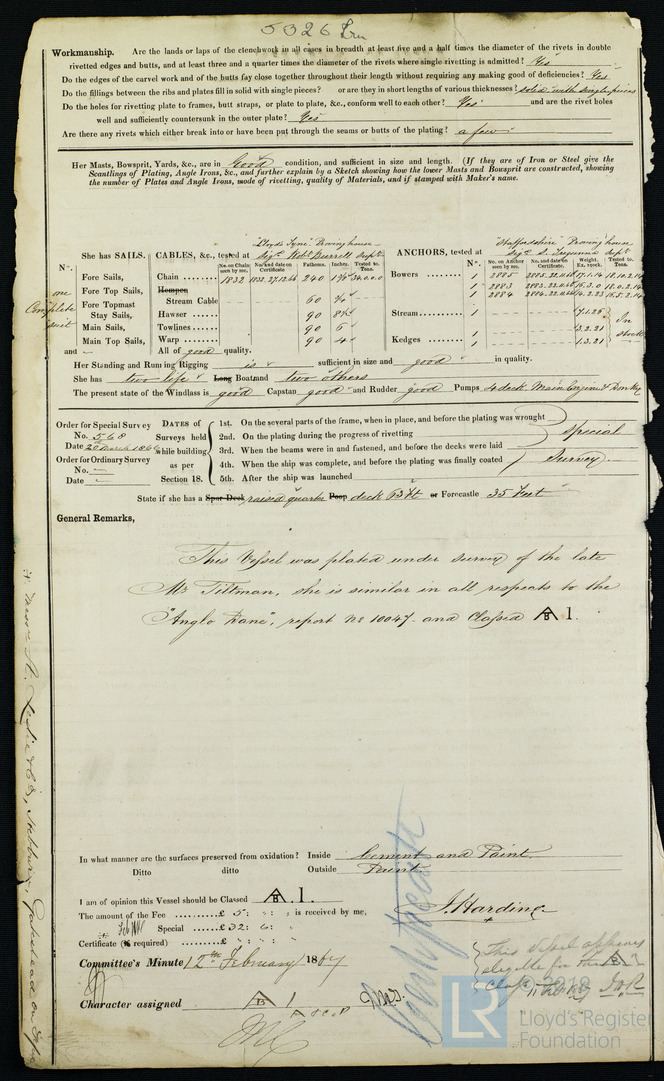 5326 Irn
Workmanship. Are the lands or laps of the clenchwork in all cases in breadth at least five and a half times the diameter of the rivets in double
rivetted edges and butts, and at least three and a quarter times the diameter of the rivets where single rivetting is admitted? Yes
Do the edges of the carvel work and of the butts fay close together throughout their length without requiring any making good of deficiencies? Yes
Do the fillings between the ribs and plates fill in solid with single pieces? or are they in short lengths of various thicknesses? solid with single pieces
Do the holes for rivetting plate to frames, butt straps, or plate to plate, &c., conform well to each other? Yes and are the rivet holes
well and sufficiently countersunk in the outer plate? Yes
Are there any rivets which either break into or have been put through the seams or butts of the plating? a few
Her Masts, Bowsprit, Yards, &c., are in Good condition, and sufficient in size and length. (If they are of Iron or Steel give the
Scantlings of Plating, Angle Irons, &c., and further explain by a Sketch showing how the lower Masts and Bowsprit are constructed, showing
the number of Plates and Angle Irons, mode of rivetting, quality of Materials, and if stamped with Maker's name.
"Lloyds Tyne" Proving house "Staffordshire" Proving house
She has SAILS. CABLES, &c., tested at Sigd. Robt. Burrell Supt. ANCHORS, tested at Sigd. Supt.
N°. No. on Chain seen by me. No. and date on Certificate Fathoms. Inches. Tested to. Tons. N°. No. on Anchor seen by me. No. and date on Certificate. Weight. Ex. stock. Tested to. Tons.
one Complete suit
Fore Sails, Chain 1832 1832.27.12.66 240 Bowers 1 2885 2885.22.11.66 17.1.14 18.10.2.14
Fore Top Sails, Hempen 1 2883 2883.22.11.66 16.3.0 18.0.2.14
Fore Topmast Stream Cable 60 1 2884 2884.22.11.66
Stay Sails, Hawser 90 Stream 1
Main Sails, Towlines 90 6 1 3.2.21 In
Main Top Sails, Warp 90 4 Kedges 1 1.3.21 stock
and All of good quality.
Her Standing and Running Rigging is sufficient in size and good in quality.
She has two life Long Boat and two others
The present state of the Windlass is good Capstan good and Rudder good Pumps 4 deck Main Engine & Donkey
Order for Special Survey
No. 568
Date 20 March 1866
Order for Ordinary Survey
No. -
Date -
DATES of
Surveys held
while building
as per
Section 18.
1st. On the several parts of the frame, when in place, and before the plating was wrought
2nd. On the plating during the progress of rivetting
3rd. When the beams were in and fastened, and before the decks were laid
4th. When the ship was complete, and before the plating was finally coated
5th. After the ship was launched
special
Survey.
State if she has a Spar Deck raised quarter Poop deck 63 ft or Forecastle 35 feet
General Remarks,
This Vessel was plated under survey of the late
Mr Tillman, she is similar in all respects to the
"Anglo Dane", report No 10047. and Classed A 1.
In what manner are the surfaces preserved from oxidation? Inside Cement and Paint.
Ditto ditto Outside Paint
I am of opinion this Vessel should be Classed A 1.
The amount of the Fee £ 5: : : is received by me,
Special £ 32: 6:
Certificate (if required) £
J. Harding
Committee's Minute 12th February 1867
Character assigned A 1
This Vessel appears
eligible for the A 1
Class
LR 2018
Lloyd's Register
Foundation